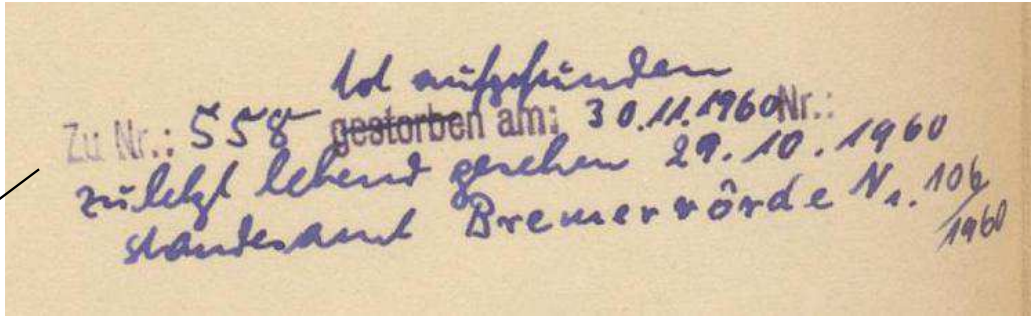 tot aufgefunden
Zu Nr.: 558 gestorben am: 30.11.1960 Nr.:
zuletzt lebend gesehen 29.10.1960
Standesamt Bremervörde Nr. 106/1960